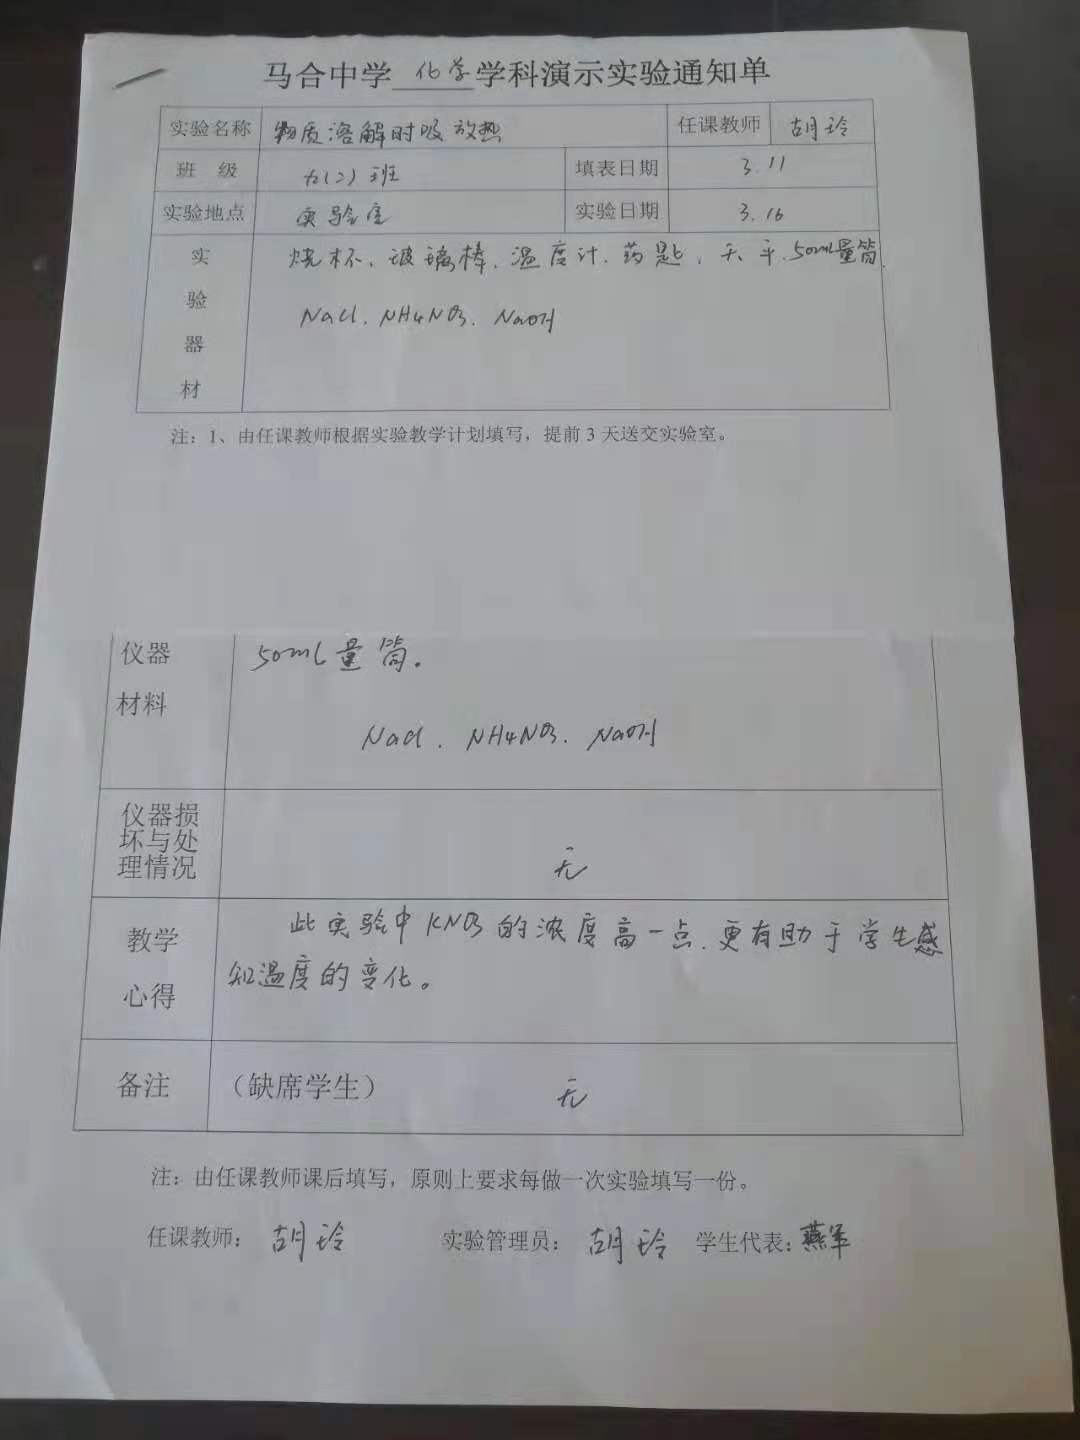 马合中学 化学 学科演示实验通知单
实验名称 物质溶解时吸放热 任课教师 胡玲
班 级 九(2)班 填表日期 3.11
实验地点 实验室 实验日期 3.16
实验器材 烧杯、玻璃棒、温度计、药匙、天平、50ml量筒
NaCl、NH4NO3、NaOH
注：1、由任课教师根据实验教学计划填写，提前3天送交实验室。
仪器 50ml量筒。
材料
NaCl、NH4NO3、NaOH
仪器损
坏与处
理情况 无
教学 此实验中KNO3的浓度高一点、更有助于学生感
心得 知温度的变化。
备注 （缺席学生） 无
注：由任课教师课后填写，原则上要求每做一次实验填写一份。
任课教师： 胡玲 实验管理员： 胡玲 学生代表：燕军